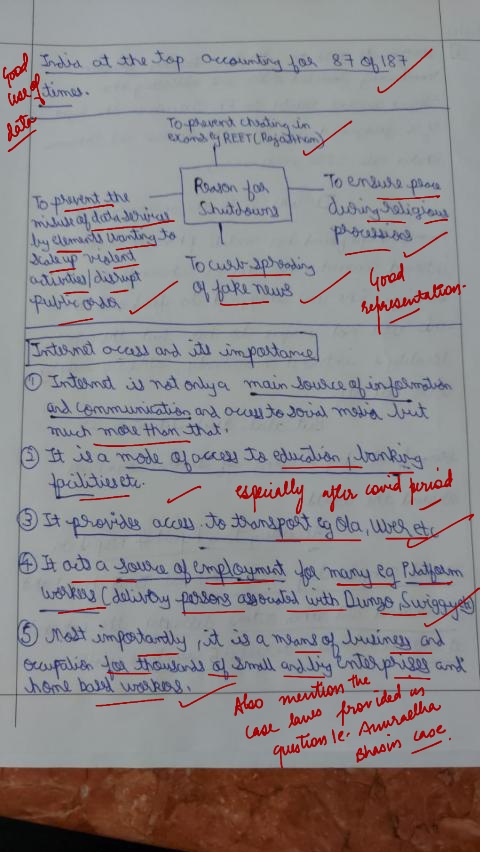 India at the top accounting for 87 of 187
times.
Good
use of
data
To prevent cheating in
exams eg REET (Rajasthan)
Reason for
Shutdowns
To prevent the
misuse of data services
by elements wanting to
scale up violent
activities/disrupt
public order
To ensure peace
during religious
processions
To curb spreading
of fake news
Good
representation.
Internet access and its importance
① Internet is not only a main source of information
and communication and access to social media but
much more than that.
② It is a mode of access to education, banking
facilities etc.
especially after covid period
③ It provides access to transport eg Ola, Uber etc
④ It acts a source of employment for many eg Platform
workers (delivery persons associated with Dunzo, Swiggy etc)
⑤ Most importantly, it is a means of business and
occupation for thousands of small and big Enterprises and
home based workers.
Also mention the
case laws provided in
question i.e. Anuradha
Bhasin case.